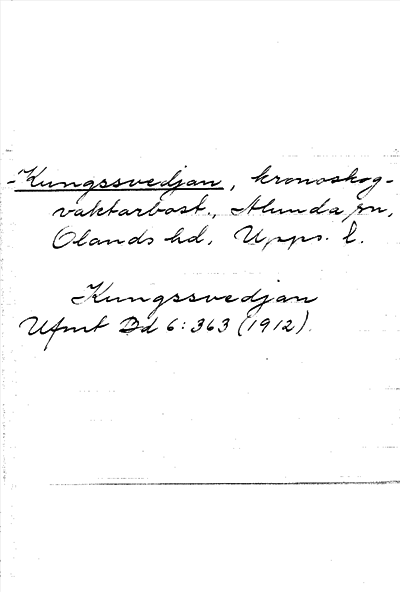 -Kungssvedjan, kronoskog-
vaktarbost., Alunda sn,
Olands hd, Upps. l.
Kungssvedjan
Ufmt Bd 6:363 (1912).